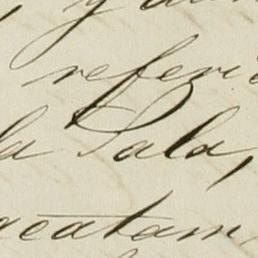 y
referi
la Sala,
acatam